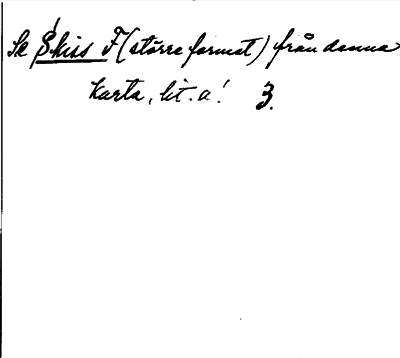 Se Skiss F (större format) från denna
karta, lit. a! 3.